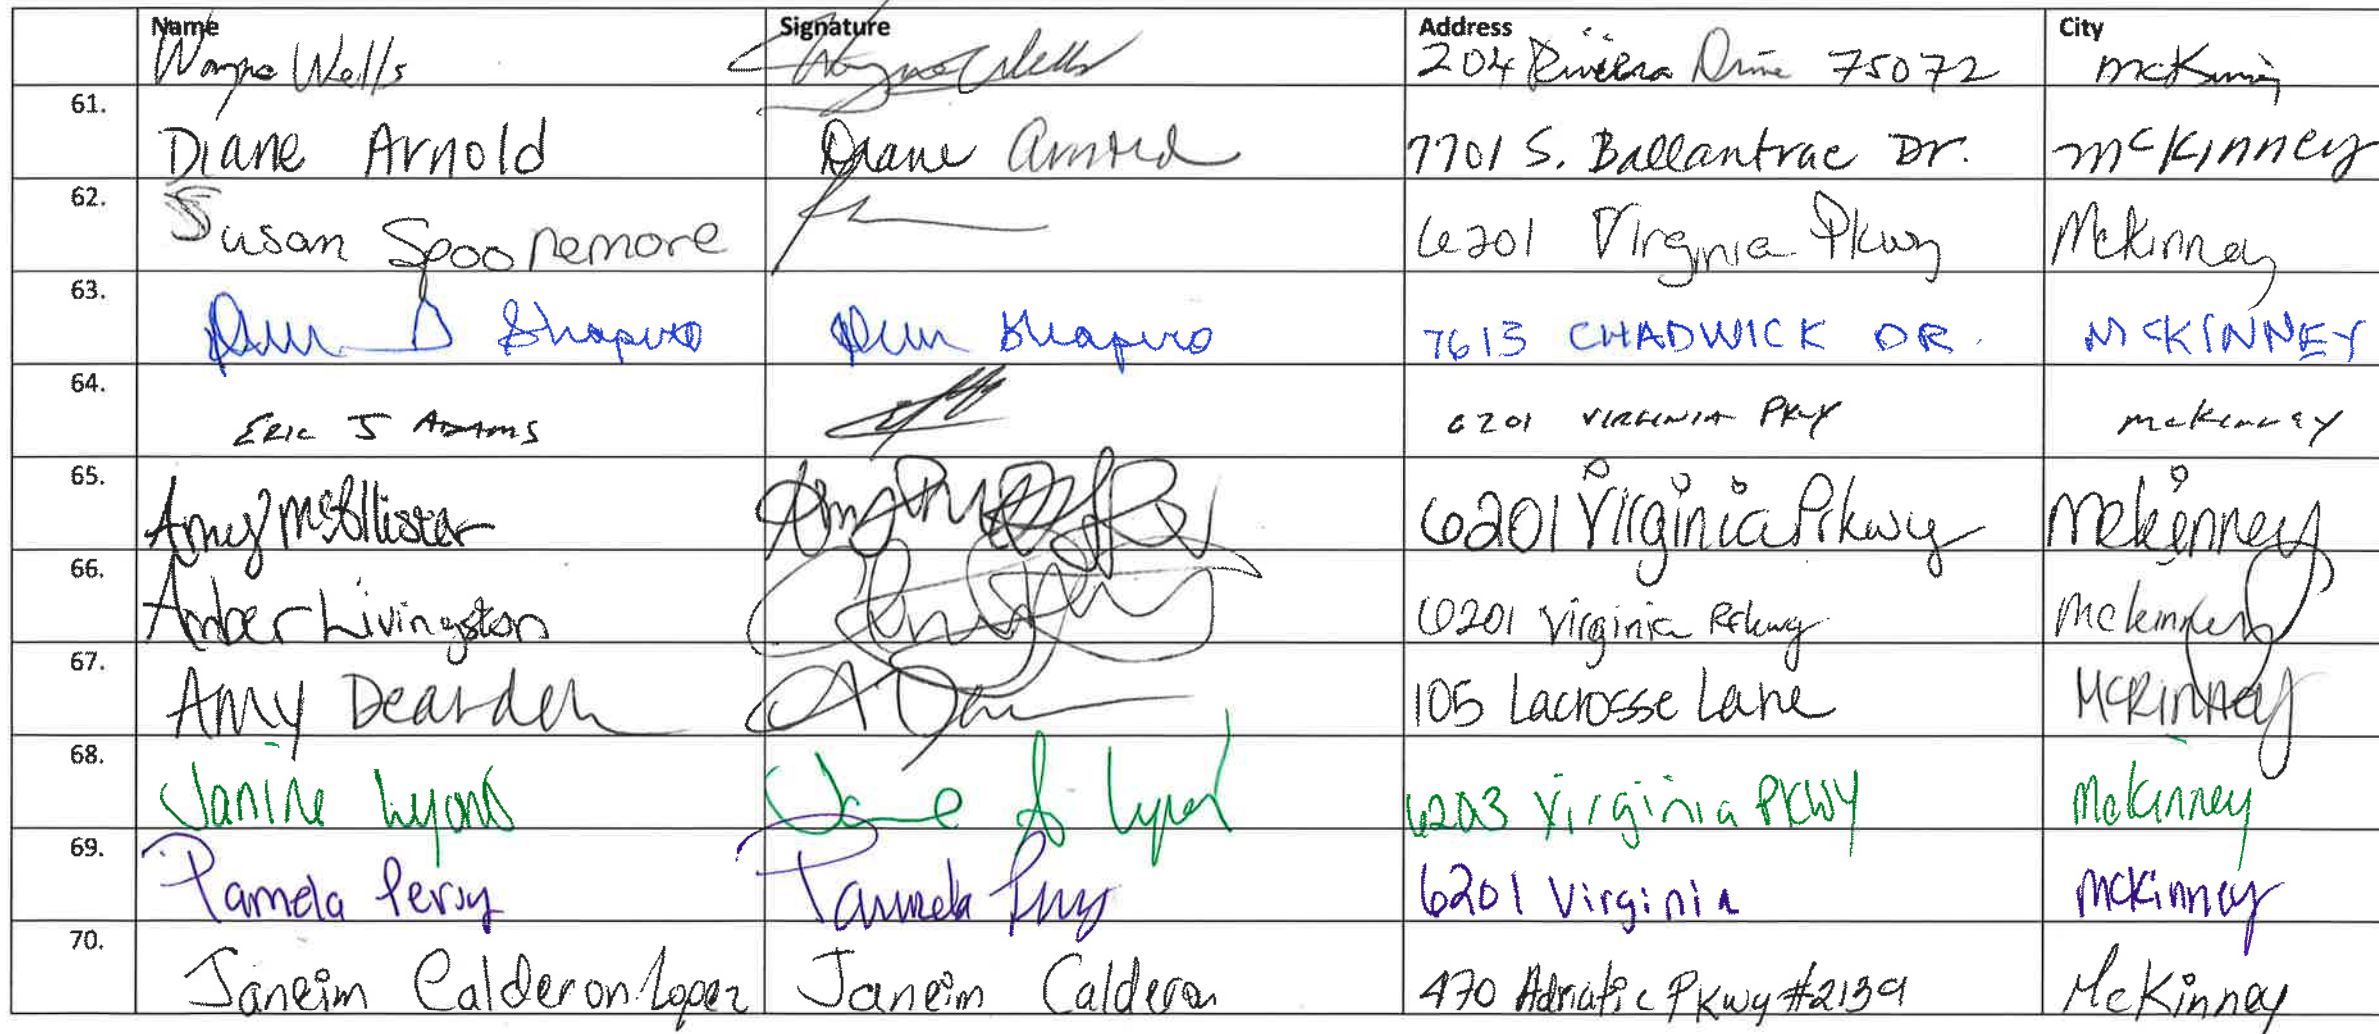 Name Signature Address City
Wayne Wells Wayne Wells 204 Riviera Drive 75072 McKinney
61. Diane Arnold Diane Arnold 7701 S. Ballantrae Dr. McKinney
62. Susan Spoonemore 6201 Virginia Pkwy McKinney
63. D Shapiro Shapiro 7613 CHADWICK DR. MCKINNEY
64. ERIC J ADAMS 6201 VIRGINIA PKY McKinney
65. Amy McAllister 6201 Virginia Prkwy Mckinney
66. Amber Livingston 6201 Virginia Prkwy Mckinney
67. Amy Dearden 105 Lacrosse Lane McKinney
68. Janine Lyons 6203 Virginia PKWY McKinney
69. Pamela Perry Pamela Perry 6201 Virginia McKinney
70. Janeim Calderon-Lopez Janeim Calderon 470 Adriatic Pkwy #2139 McKinney